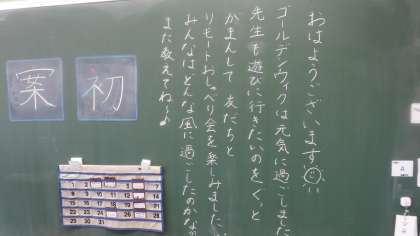 おはようございます
ゴールデンウィクは元気に過ごしました
先生も遊びに行きたいのをぐっと
がまんして 友だちと
リモートおしゃべり会を楽しみました
みんなはどんな風に過ごしたのかな
また教えてね♪
初
案